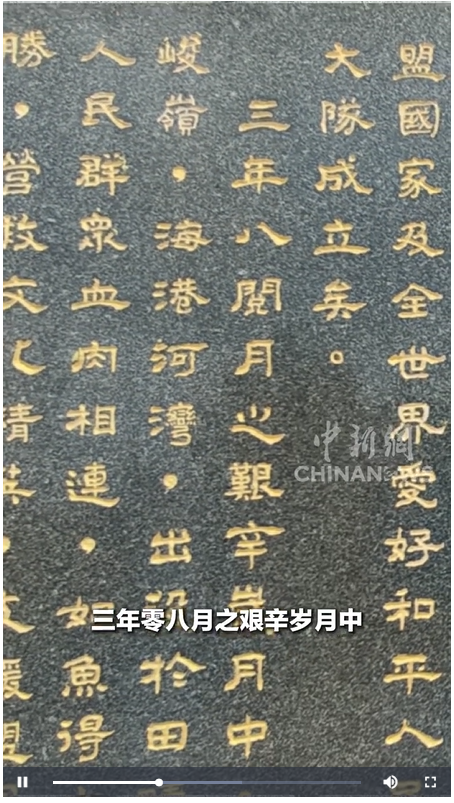 盟國家及全世界愛好和平人
大隊成立矣。
三年八閱月之艱辛歲月中
峻嶺，海港河灣，出沒於田
人民群眾血肉相連，如魚得
勝，營救文化精英，支援盟
中新網
CHINANEWS
三年零八月之艰辛岁月中